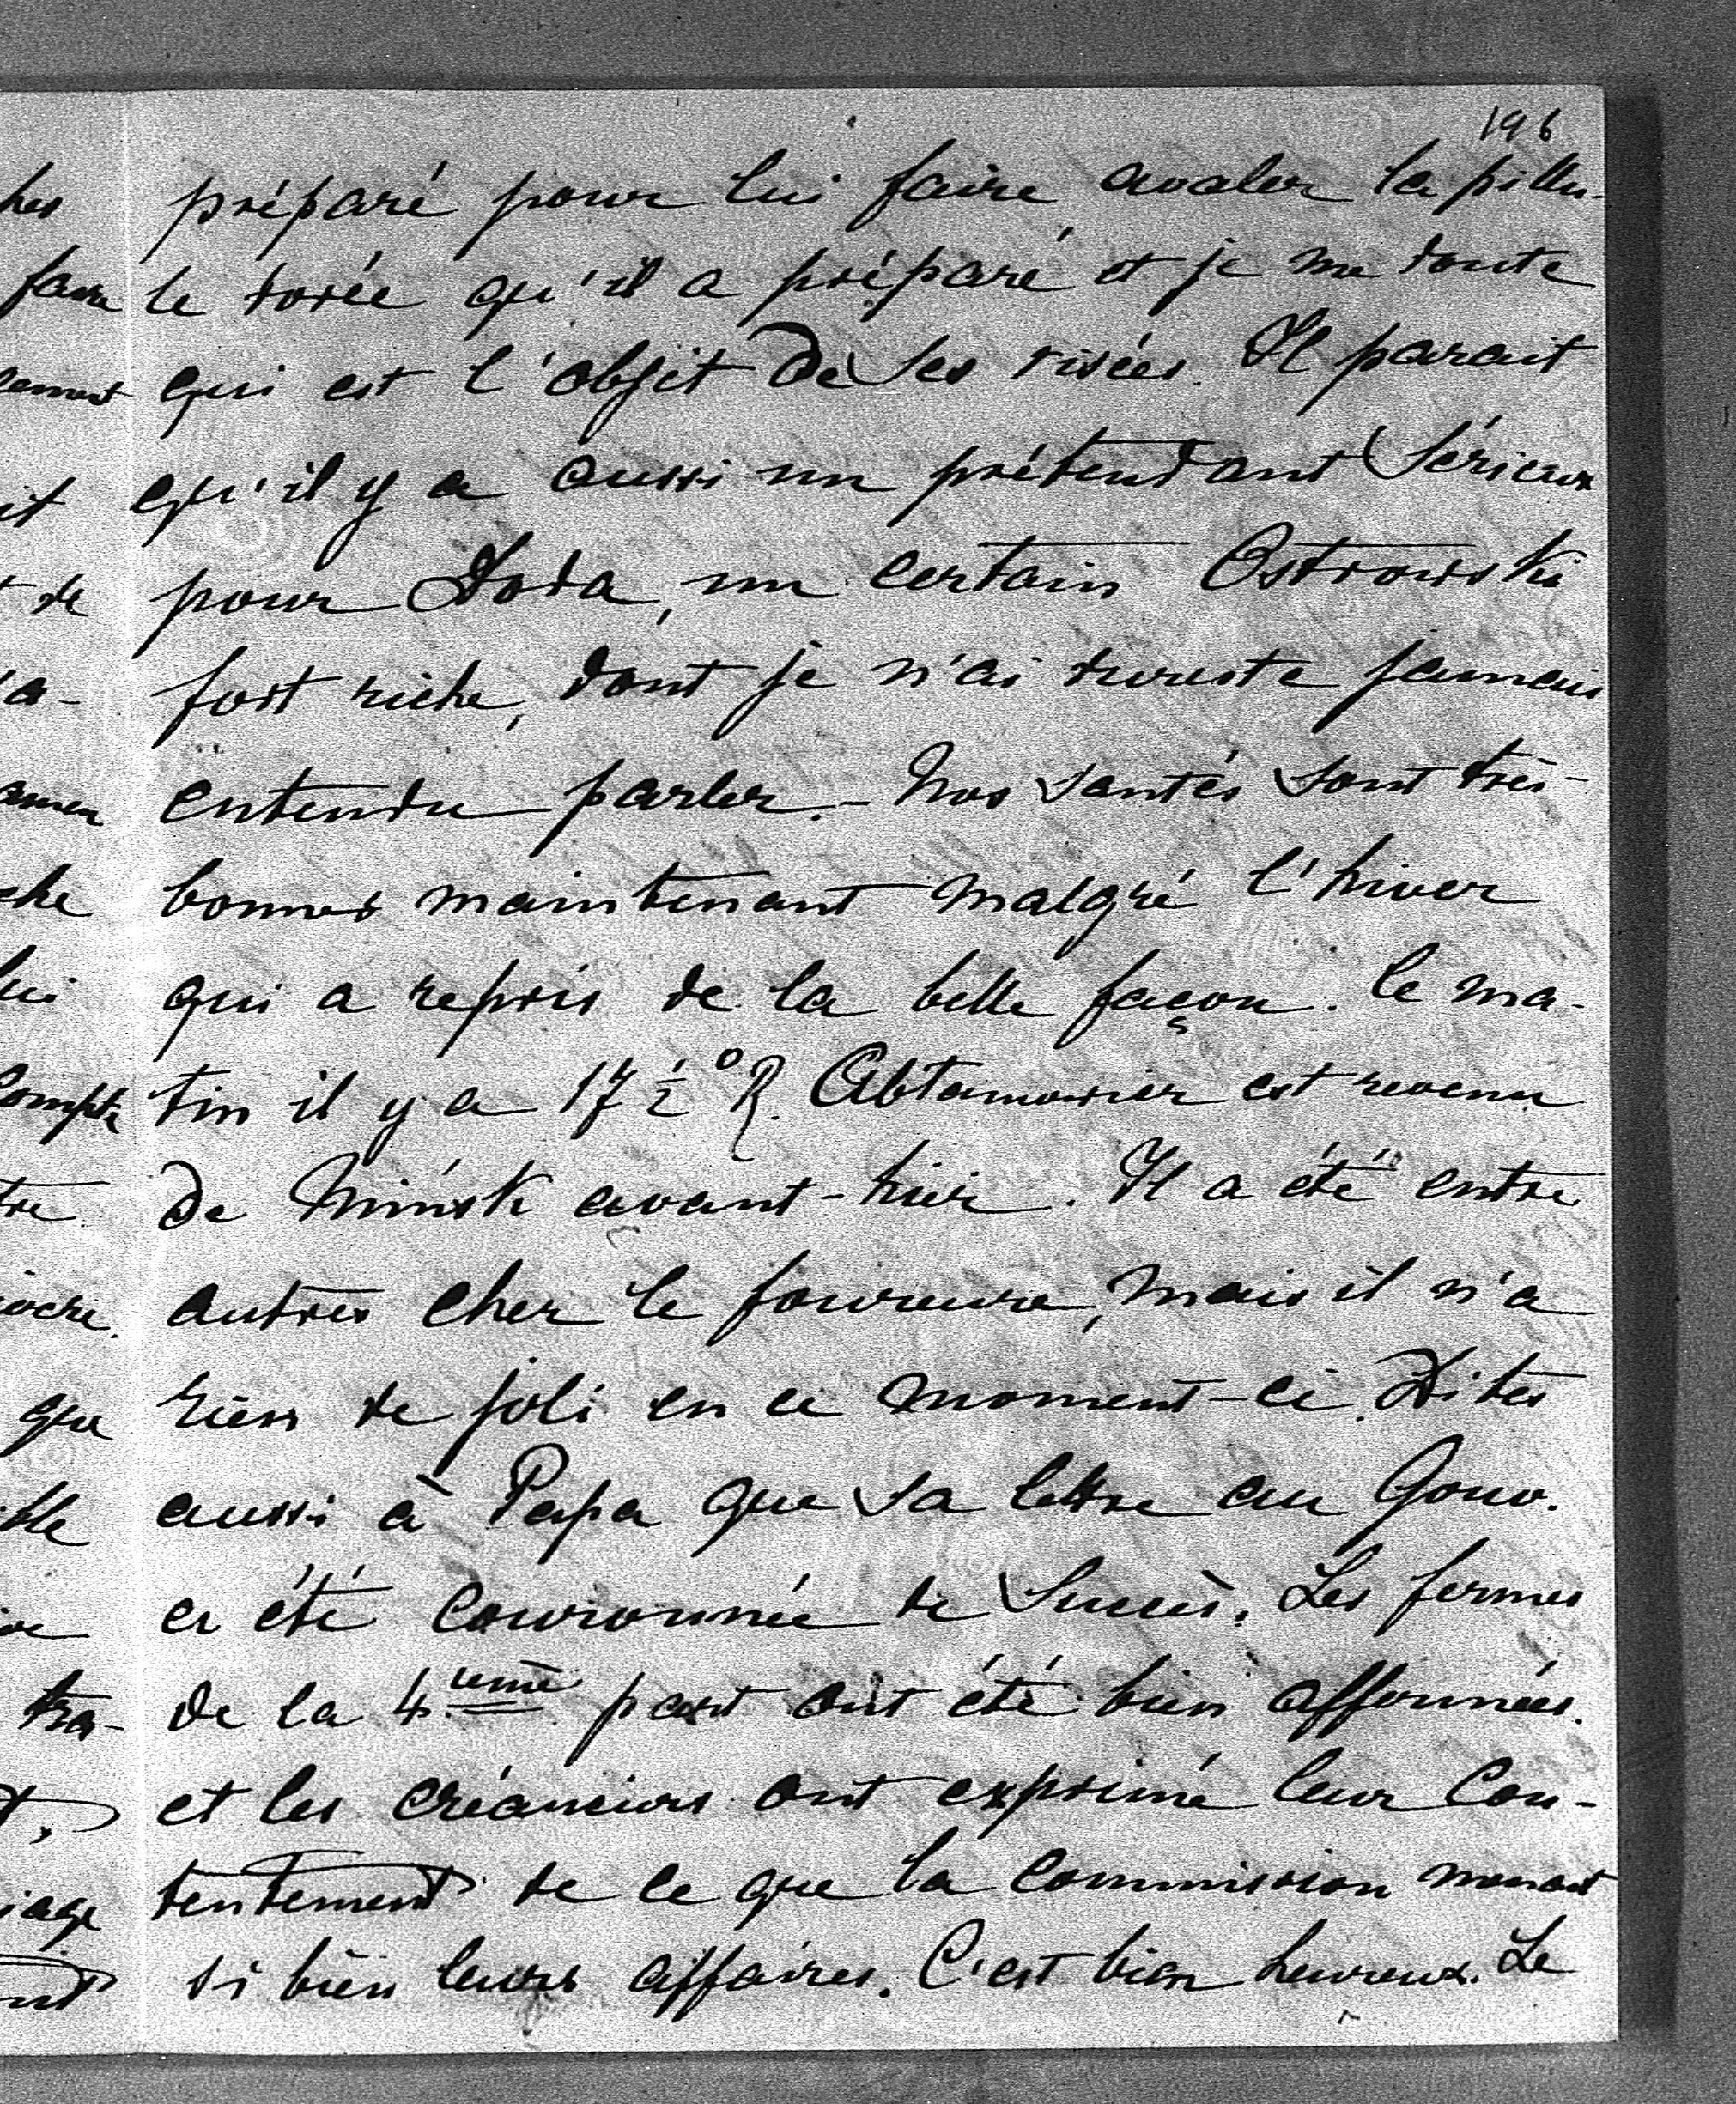 196
préparé pour lui faire avaler la pillu-
le dorée qu'il a préparé et je me doute
qui est l'objet de ses risées. Il parait
qu'il y a aussi un prétendant sérieux
pour Doda, un certain Ostrowski
fort riche, dont je n'ai dureste jamais
entendu parler. - Nos santés sont très-
bonnes maintenant malgré l'hiver
qui a repris de la belle façon. Ce ma-
tin il y a 17 ½ °R. est revenu
de Minsk avant-hier. Il a été entre
autres cher le foureure, mais il n'a
rien de joli en ce moment-ci. Dites
aussi à Papa que sa lettre au Gouv.
a été couronnée de succès. Les fermes
de la 4 ieme part ont été bien affermées.
et les créanciers ont exprimé leur con-
tentement de ce que la commission menait
si bien leurs affaires. C'est bien heureux. Le